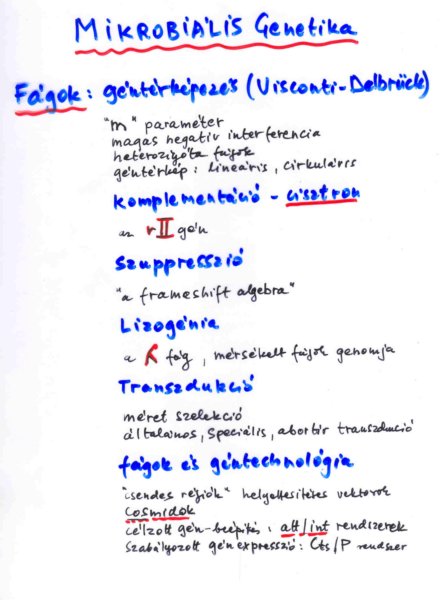 MIKROBIÁLIS Genetika
Fágok: géntérképezés (Visconti-Delbrück)
"m" paraméter
magas negatív interferencia
heterozigóta fágok
géntérkép: lineáris, cirkuláris
Komplementáció - cisztron
az rII gén
Szuppresszió
"a frameshift algebra"
Lizogénia
a λ fág, mérsékelt fágok genomja
Transzdukció
méret szelekció
általános, speciális, abortív transzdukció
fágok és géntechnológia
"csendes régiók" helyettesítéses vektorok
cosmidok
célzott gén-beépítés: att/int rendszerek
szabályozott génexpresszió: Cts/P rendszer